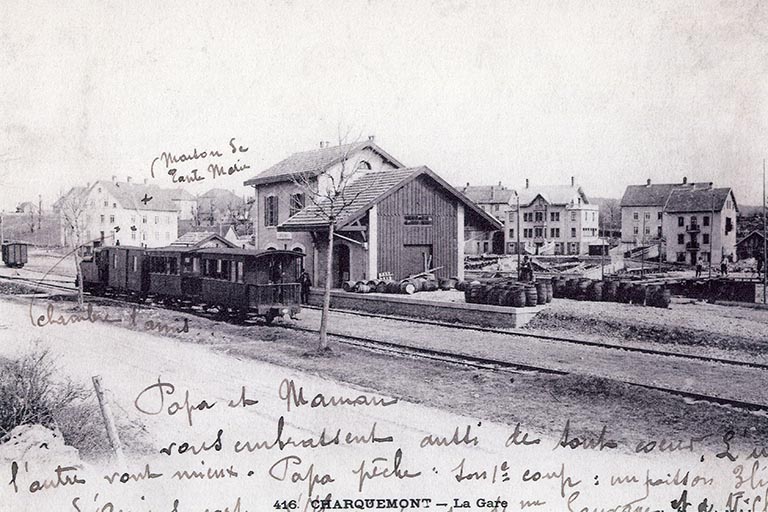 Maison de
Tante Marie
chambre d'amis
Papa et Maman
vous embrassent aussi de tout cœur. L'un
l'autre vont mieux. Papa pêche : son 1e coup : un poisson 3li
416. CHARQUEMONT – La Gare